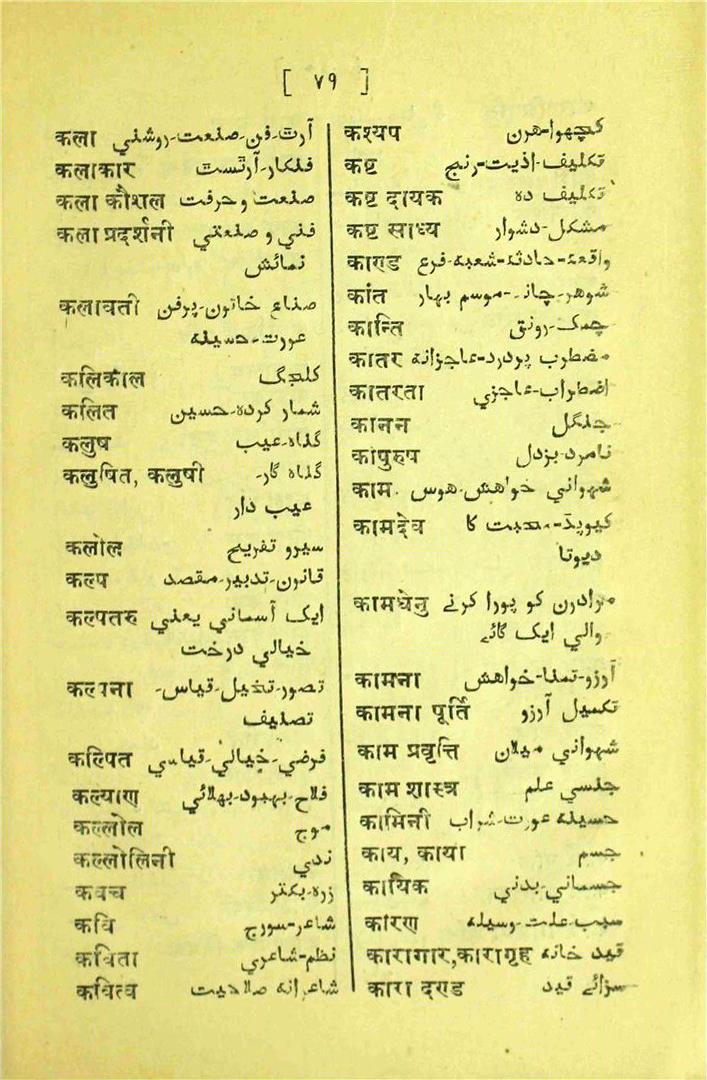 [ ७९ ]
कला آرٹ-فن-صنعت-روشنی
कलाकार فلکار-آرٹسٹ
कला कौशल صنعت و حرفت
कला प्रदर्शनी فنی و صنعتی
نمائش
कलावती صناع خاتون-پرفن
عورت-حسینہ
कलिकाल کلجگ
कलित شمار کردہ-حسین
कलुष گناہ-عیب
कलुषित, कलुषी گناہ گار-
عیب دار
कलोल سیرو تفریح
कल्प قانون-تدبیر-مقصد
कल्पतरु ایک آسمانی یعنی
خیالی درخت
कल्पना تصور-تخیل-قیاس-
تصنیف
कल्पित فرضی-خیالی-قیاسی
कल्याण فلاح-بہبود-بھلائی
कल्लोल موج
कल्लोलिनी ندی
कवच زرہ-بکتر
कवि شاعر-سورج
कविता نظم-شاعری
कवित्व شاعرانہ صلاحیت
कश्यप کچھوا-ہرن
कष्ट تکلیف-اذیت-رنج
कष्ट दायक تکلیف دہ
कष्ट साध्य مشکل-دشوار
काण्ड واقعہ-حادثہ-شعبہ-فرع
कांत شوہر-چاند-موسم بہار
कान्ति چمک-رونق
कातर مضطرب پردرد-عاجزانہ
कातरता اضطراب-عاجزی
कानन جنگل
कापुरुष نامرد-بزدل
काम شہوانی خواہش-ہوس
कामदेव کیوپڈ-محبت کا
دیوتا
कामधेनु مرادوں کو پورا کرنے
والی ایک گائے
कामना آرزو-تمنا-خواہش
कामना पूर्ति تکمیل آرزو
काम प्रवृत्ति شہوانی میلان
काम शास्त्र جنسی علم
कामिनी حسینہ عورت-شراب
काय, काया جسم
कायिक جسمانی-بدنی
कारण سبب-علت-وسیلہ
कारागार,कारागृह قید خانہ
कारा दण्ड سزائے قید